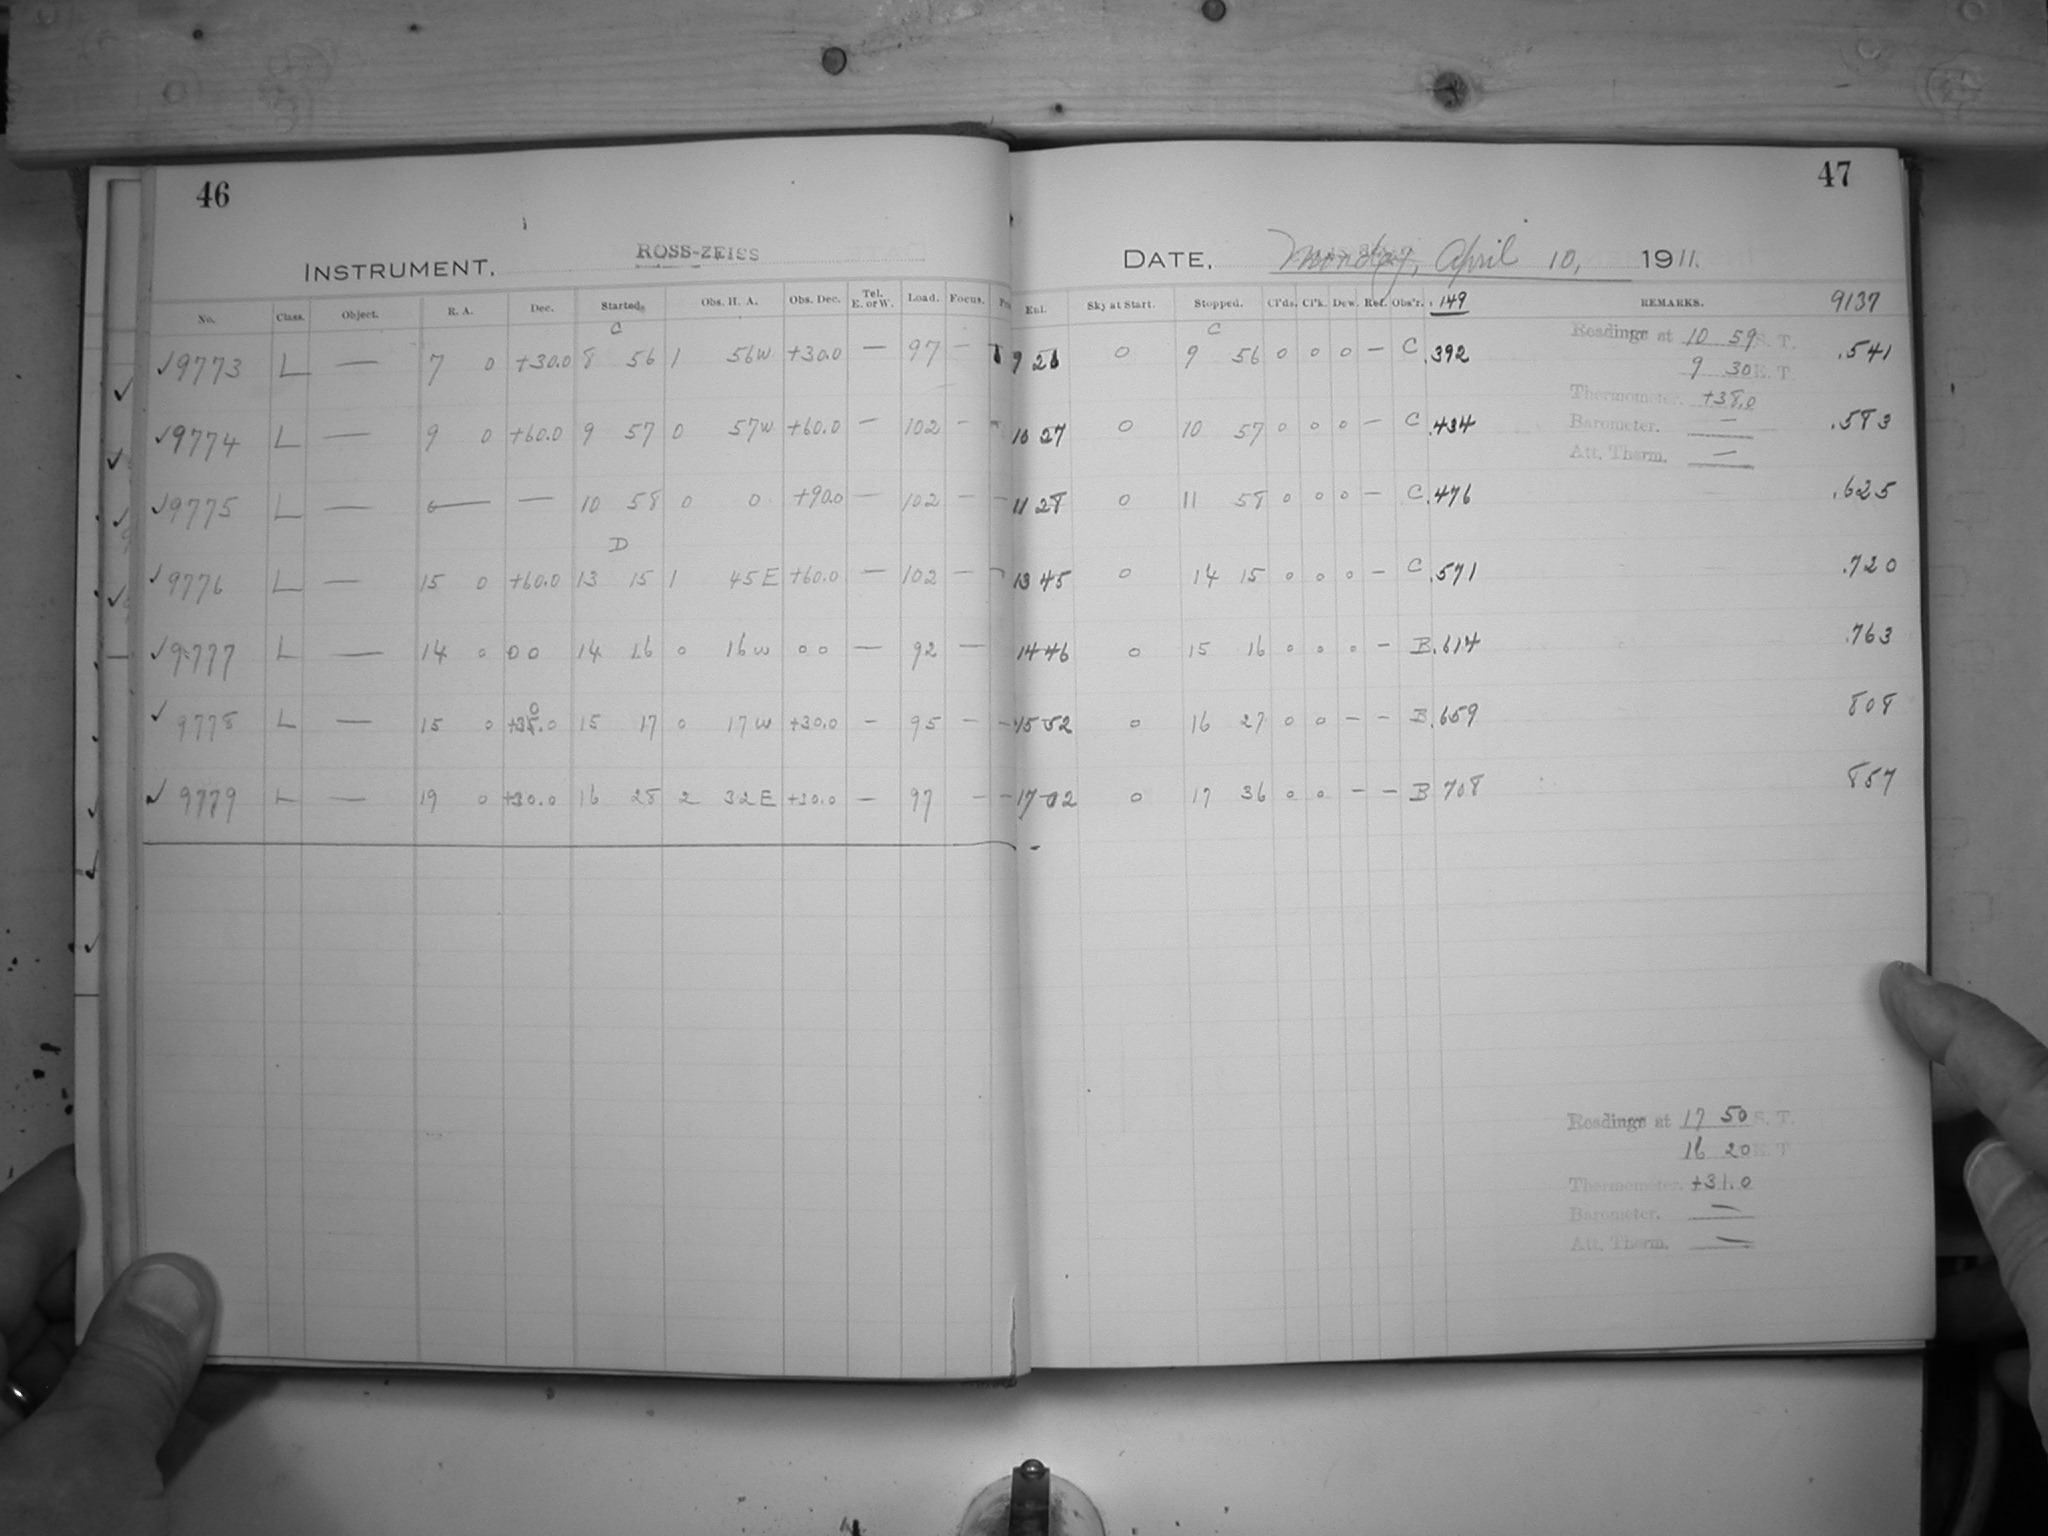 46
INSTRUMENT. ROSS-ZEISS
No. Class. Object. R. A. Dec. Started. Obs. H. A. Obs. Dec. Tel. E. or W. Load. Focus.
C
✓9773 L — 7 0 +30.0 8 56 1 56w +30.0 — 97 —
✓9774 L — 9 0 +60.0 9 57 0 57w +60.0 — 102 —
✓9775 L — — 10 58 0 0 +90.0 — 102 — —
D
✓9776 L — 15 0 +60.0 13 15 1 45E +60.0 — 102 —
✓9777 L — 14 0 00 14 16 0 16w 00 — 92 —
✓9778 L — 15 0 15 17 0 17w +30.0 — 95 — —
✓9779 L — 19 0 +30.0 16 28 2 32E +30.0 — 97 — —
47
DATE, Monday, April 10, 1911.
Eul. Sky at Start. Stopped. Cl'ds. Cl'k. Dew. Ref. Obs'r. 149 REMARKS. 9137
C
9 26 0 9 56 0 0 0 — C .392 .541
10 27 0 10 57 0 0 0 — C .434 .583
11 28 0 11 58 0 0 0 — C .476 .625
13 45 0 14 15 0 0 0 — C .571 .720
14 46 0 15 16 0 0 0 — B .614 .763
15 52 0 16 27 0 0 — — B .659 808
17 02 0 17 36 0 0 — — B 708 857
Readings at 10 59 S. T.
9 30 E. T.
Thermometer. +38.0
Barometer. —
Att. Therm. —
Readings at 17 50 S. T.
16 20 E. T.
Thermometer. +31.0
Barometer. —
Att. Therm. —